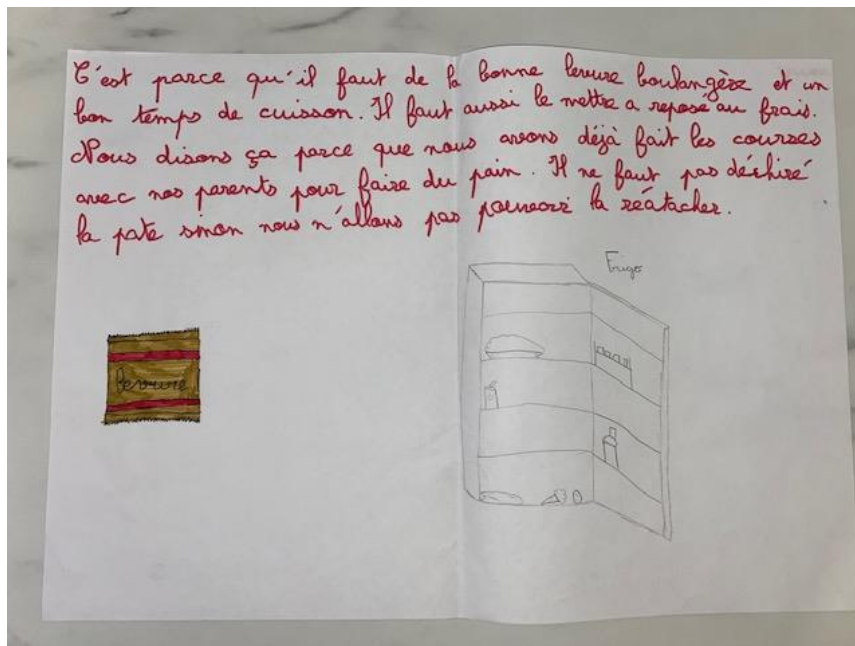 C'est parce qu'il faut de la bonne levure boulangère et un
bon temps de cuisson. Il faut aussi le mettre a reposé au frais.
Nous disons ça parce que nous avons déjà fait les courses
avec nos parents pour faire du pain. Il ne faut pas déchiré
la pate sinon nous n'allons pas pouvoir la réatacher.
Frigo
levure